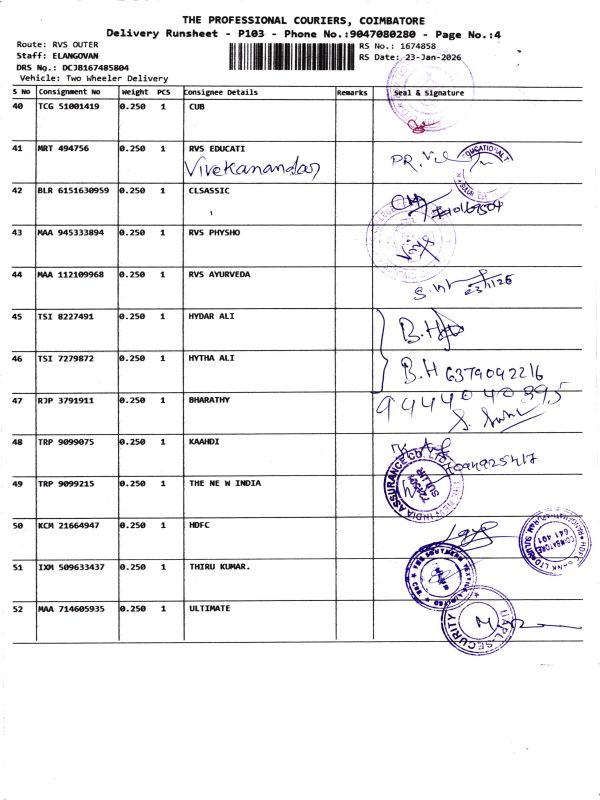 THE PROFESSIONAL COURIERS, COIMBATORE
Delivery Runsheet - P103 - Phone No.:9047080280 - Page No.:4
Route: RVS OUTER
RS No.: 1674858
Staff: ELANGOVAN
RS Date: 23-Jan-2026
DRS No.: DCJB167485804
Vehicle: Two Wheeler Delivery
S No Consignment No Weight PCS Consignee Details Remarks Seal & Signature
40 TCG 51001419 0.250 1 CUB
41 MRT 494756 0.250 1 RVS EDUCATI
Vivekanandar
42 BLR 6151630959 0.250 1 CLSASSIC
43 MAA 945333894 0.250 1 RVS PHYSHO
44 MAA 112109968 0.250 1 RVS AYURVEDA
23/1/26
45 TSI 8227491 0.250 1 HYDAR ALI
46 TSI 7279872 0.250 1 HYTHA ALI B.H 6379092216
47 RJP 3791911 0.250 1 BHARATHY 9444040895
48 TRP 9099075 0.250 1 KAAHDI
49 TRP 9099215 0.250 1 THE NE W INDIA
THE NEW INDIA ASSURANCE CO. LTD
SULUR
50 KCM 21664947 0.250 1 HDFC
HDFC BANK LTD
COIMBATORE
641 401
51 IXM 509633437 0.250 1 THIRU KUMAR.
52 MAA 714605935 0.250 1 ULTIMATE
SECURITY